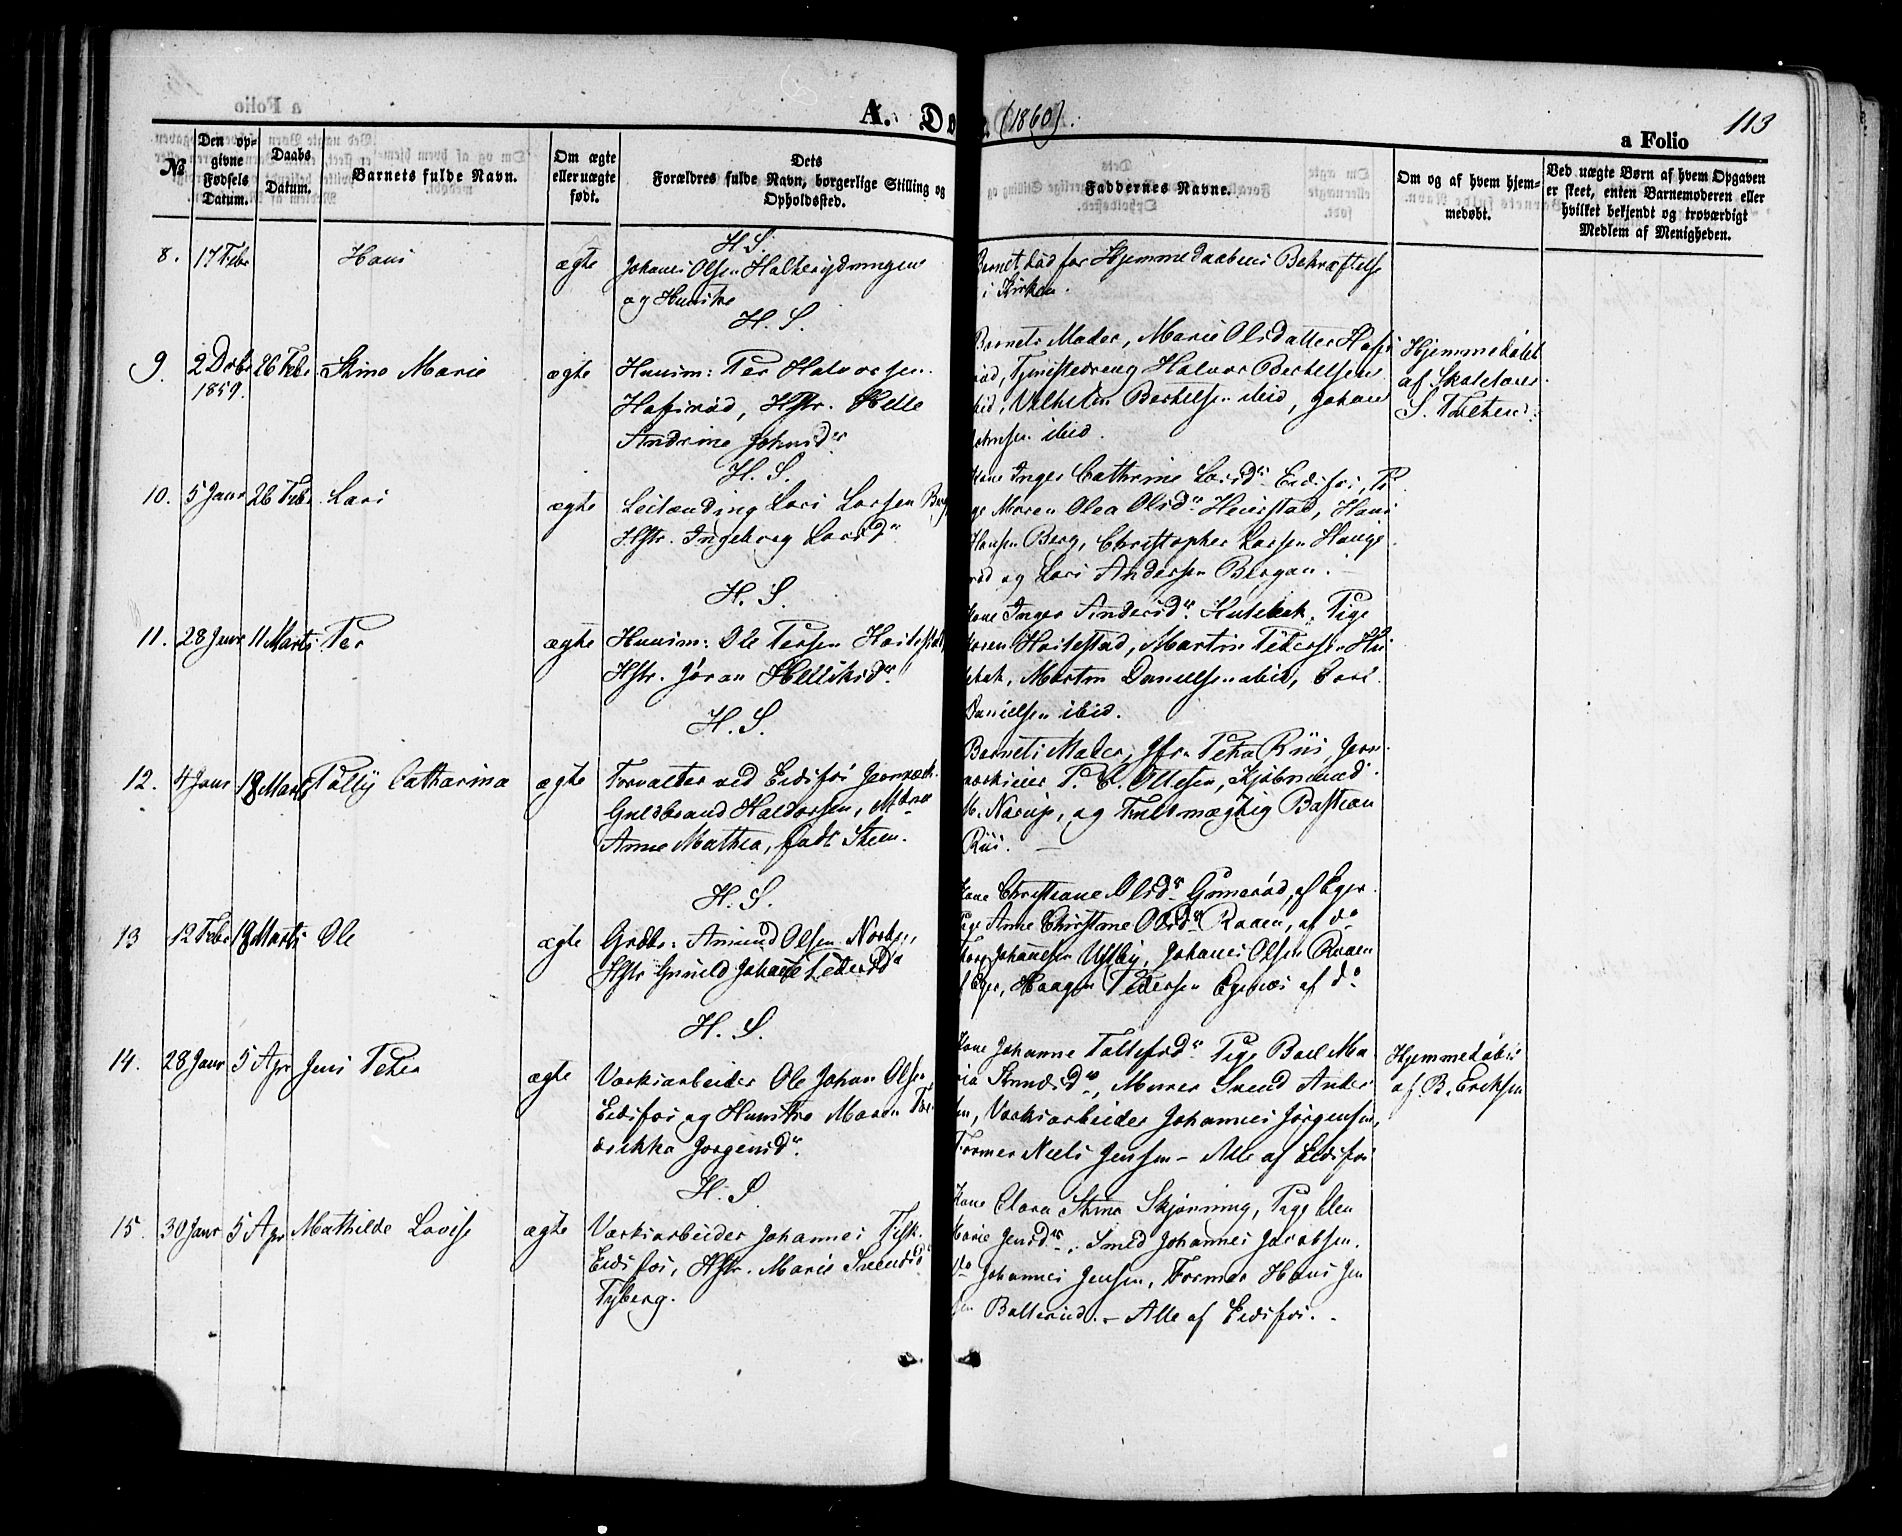 A. Dø (1860).
113
a Folio
№
Den op-
givne
Fødsels
Datum.
Daabs
Datum.
Barnets fulde Navn.
Om ægte
eller uægte
født.
Dets
Forældres fulde Navn, borgerlige Stilling og
Opholdssted.
Faddernes Navne.
Om og af hvem hjem-
medøbt.
Ved uægte Børn af hvem Opgaven
er skeet, enten Barnemoderen eller
hvilket bekjendt og troværdigt
Medlem af Menigheden.
H. S.
8. 17 Febr Hans ægte Johanes Olsen
og Hustru
Barnet død før Hjemmedaabens Bekræftelse
i Kirken.
H. S.
9. 2 Dcbr 26 Febr Stine Marie ægte Huusm: Per Halvorsen
1859.
Hafsrød, Hstr. Helle
Andrine Johnsdr
Barnets Moder, Marie Olsdatter
Tjenestedreng Halvor Bertelsen
Vilhelm Bertelsen ibid, Johan
ibid.
Hjemmedøbt
af Skolelærer
S. Tuftehen:
H. S.
10. 5 Janr 26 Febr Lars ægte Leilænding Lars Larsen Berg
Hstr. Ingeborg Larsdr
Kone Inger Cathrine Larsdr Eidsfos, Pi
ge Maren Olea Olsdr Heierstad, Hans
Hansen Berg, Christopher Larsen Hauge
rød og Lars Andersen Bergan.
H. S.
11. 28 Janr 11 Marts Per ægte Huusm: Ole Persen
Hstr. Jøran Helliksdr
Kone Inger Andersdr Pige
Karen Martin Petersen
Morten Danielsen ibid, Carl
Danielsen ibid.
H. S.
12. 4 Janr 18 Marts Polly Catharina ægte Forvalter ved Eidsfos Jernværk
Guldbrand Haldorsen, M
Anne Mathea, født Steen.
Barnets Moder, Jfr. Petra Riis, Jern-
værkseier P. C. Ollesen, Kjøbmand
M. Narup, og Fuldmægtig Bastian
Riis.
H. S.
13 12 Febr 18 Marts Ole ægte Amund Olsen
Hstr Gunild Johane Pedersdr
Kone Christiane Olsdr af Eger.
Pige Anne Christine Olsdr Raaen, af do
Johannesen Ulsby, Johanes Olsen Raaen
af Eger, Haagen Pedersen Egenæs af do
H. S.
14. 28 Janr 5 Apr Jens Peter ægte Værksarbeider Ole Johan Olsen
Eidsfos og Hustru Maren Fre
derikke Jørgensdr
Kone Johanne Tollefsdr Pige Boel Ma
ria Svendsdr, Murer Svend Ander
sen, Værksarbeider Johannes Jørgensen,
Former Niels Jensen – Alle af Eidsfos
Hjemmedøbt
af B. Eriksen
H. S.
15. 30 Janr 5 Apr Mathilde Lovise ægte Værksarbeider Johannes Fisk.
Eidsfos, Hstr. Marie Svendsdr
Tyberg.
Kone Clara Stine Skjønning, Pige Elen
Marie Jensdr, Smed Johannes Jacobsen.
do Johannes Jensen, Former Hans Jen
sen Bollerud. – Alle af Eidsfos.